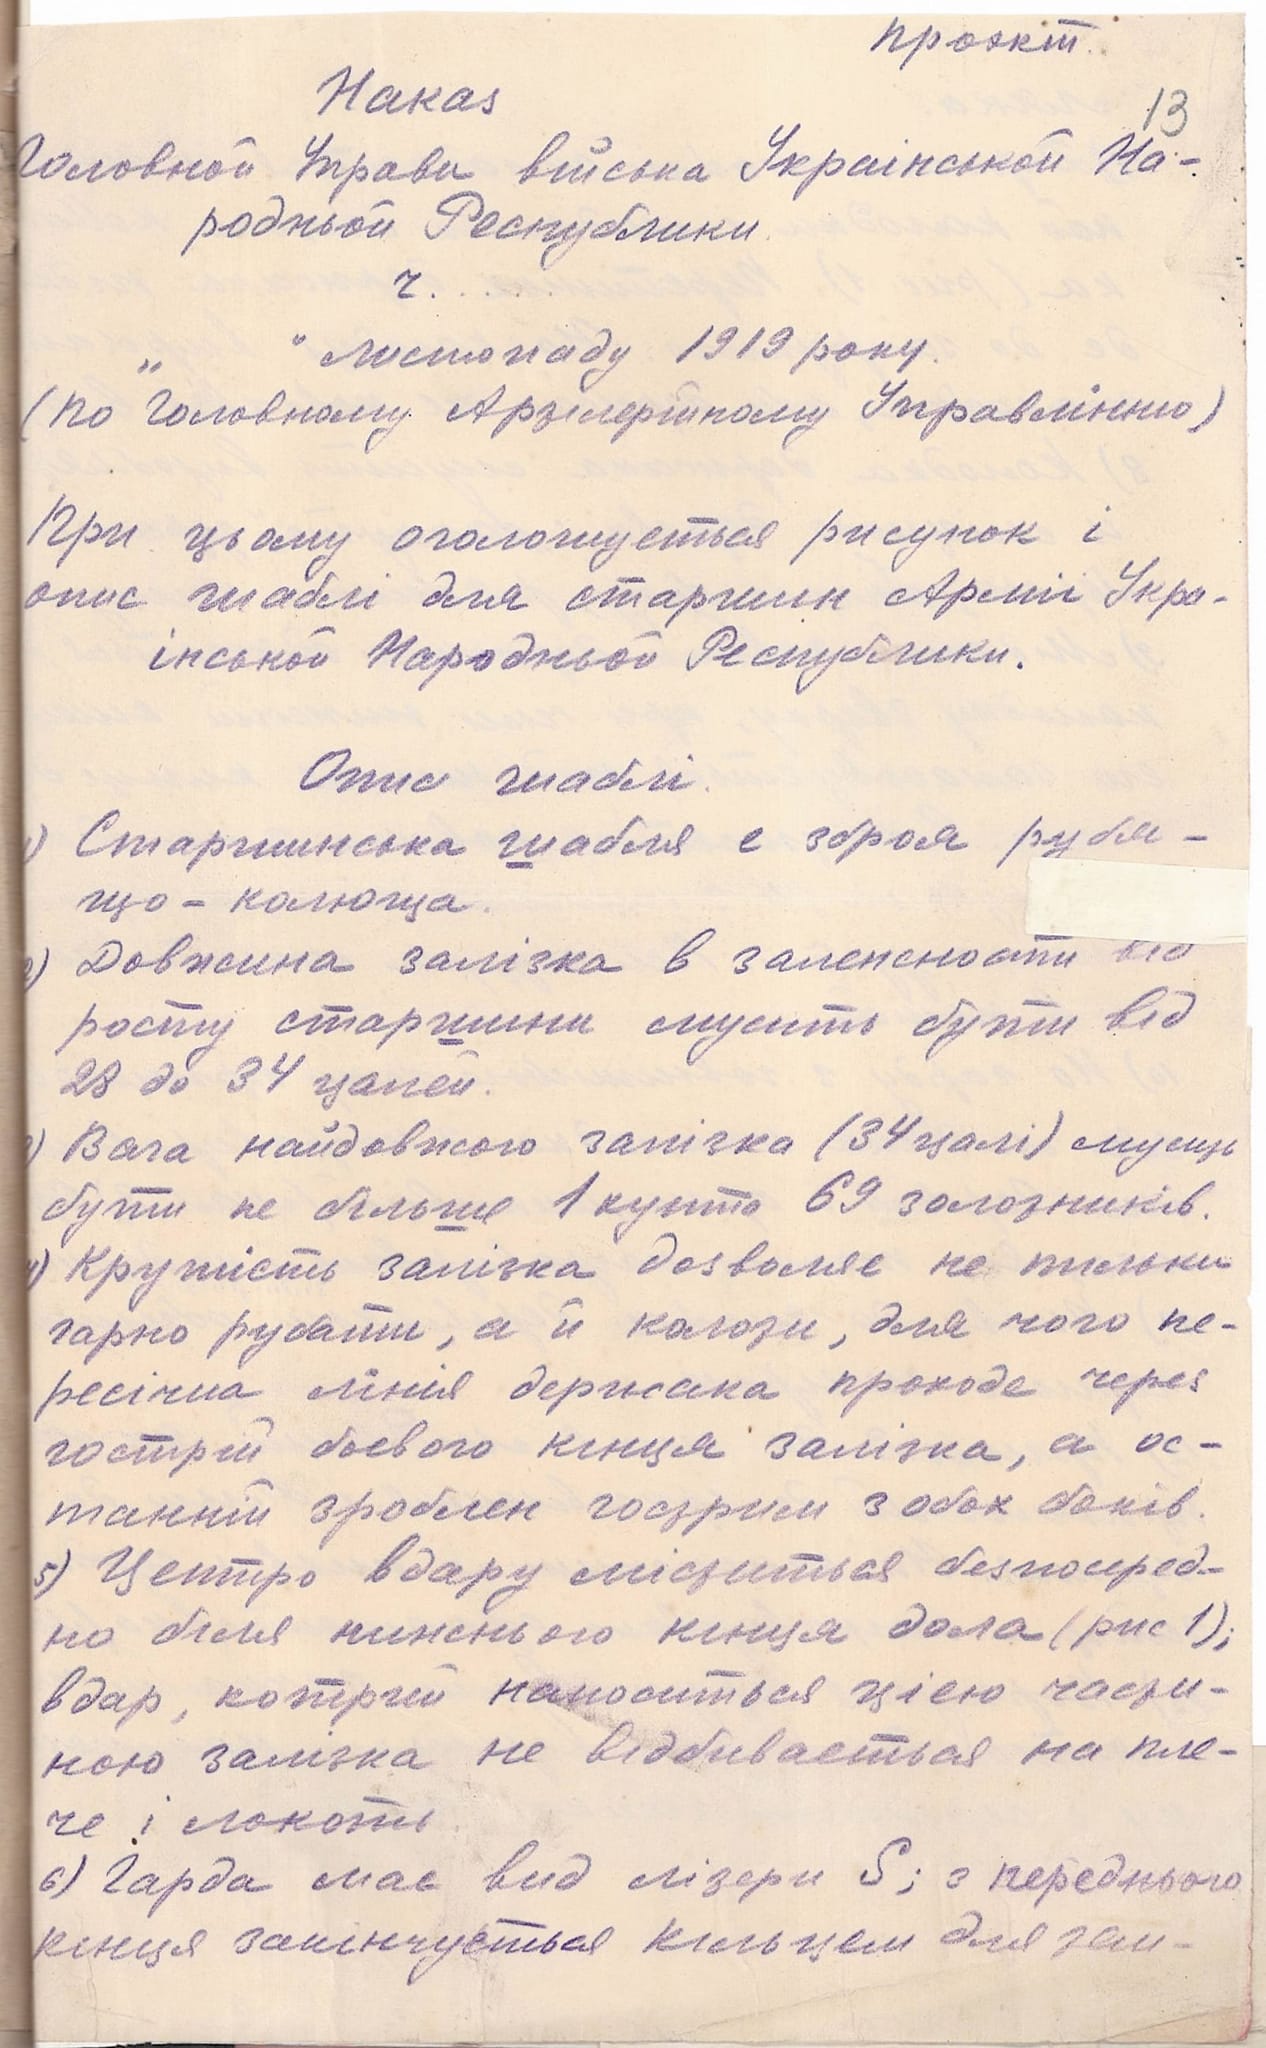 проэкт.
Наказ
13
Головной Управи війська Украінськой На-
родньой Республики.
ч. . . . . .
„ " Листопаду 1919 року.
(По Головному Артилерійному Управлінню)
При цьому оголошується рисунок і
опис шаблі для старшин Арміі Укра-
інськой Народньой Республики.
Опис шаблі.
1) Старшинська шабля є зброя рубля-
що-колюща.
2) Довжина залізка в залежности від
росту старшини мусить бути від
28 до 34 цалей.
3) Вага найдовжого залізка (34 цалі) мусить
бути не більше 1 кунто 69 золотників.
4) Крутість залізка дозволяє не тильки
гарно рубати, а й колоти, для чого пе-
ресічна лінія держака проходе через
гострій боєвого кінця залізка, а ос-
танній зроблен гострим з обох боків.
5) Центро вдару міститься безпосеред-
но біля нижнього кінця дола (рис 1);
вдар, котрий наноситься цією части-
ною залізка не відбивається на пле-
че і локоть.
6) Гарда має вид літери S; з переднього
кінця закінчується кільцем для